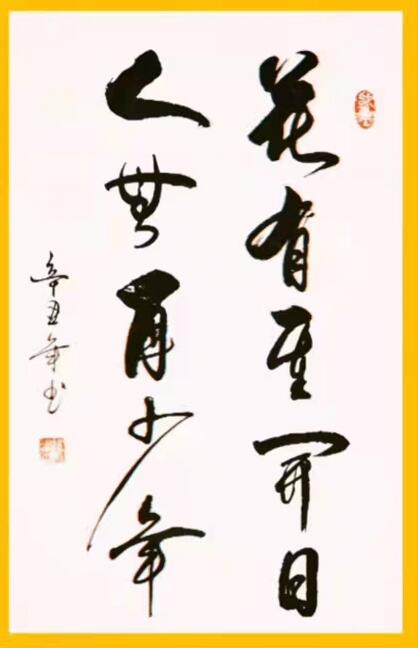 花有重開日
人無再少年
辛丑年书